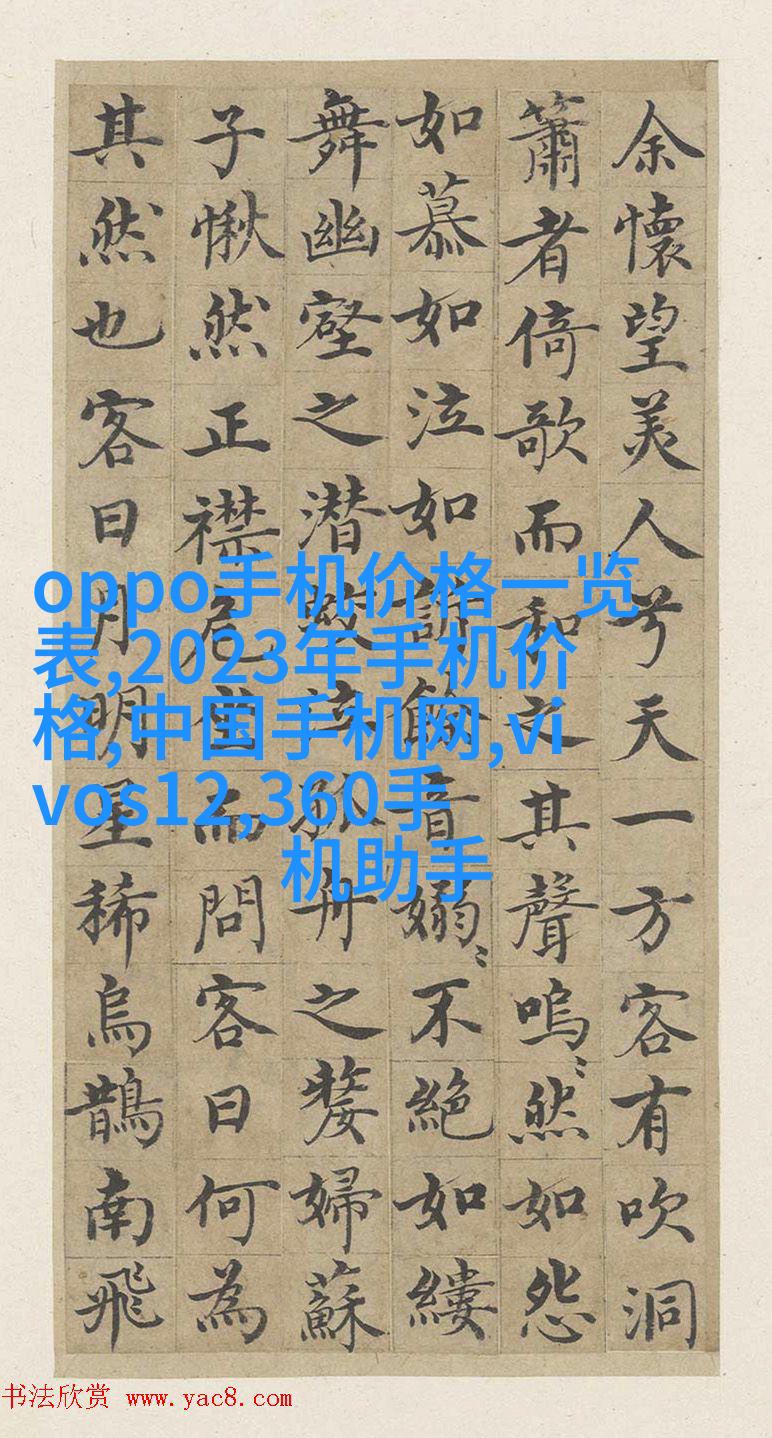 余懷望美人兮天一方客有吹洞
簫者倚歌而和之其聲嗚〻然如怨
如慕如泣如訴餘音嫋〻不絕如縷
舞幽壑之潛蛟泣孤舟之嫠婦蘇
子愀然正襟危坐而問客曰何為
其然也客曰月明星稀烏鵲南飛
oppo手机价格一览
表,2023年手机价
格,中国手机网,vi
vos12,360手
机助手
书法欣赏 www.yac8.com